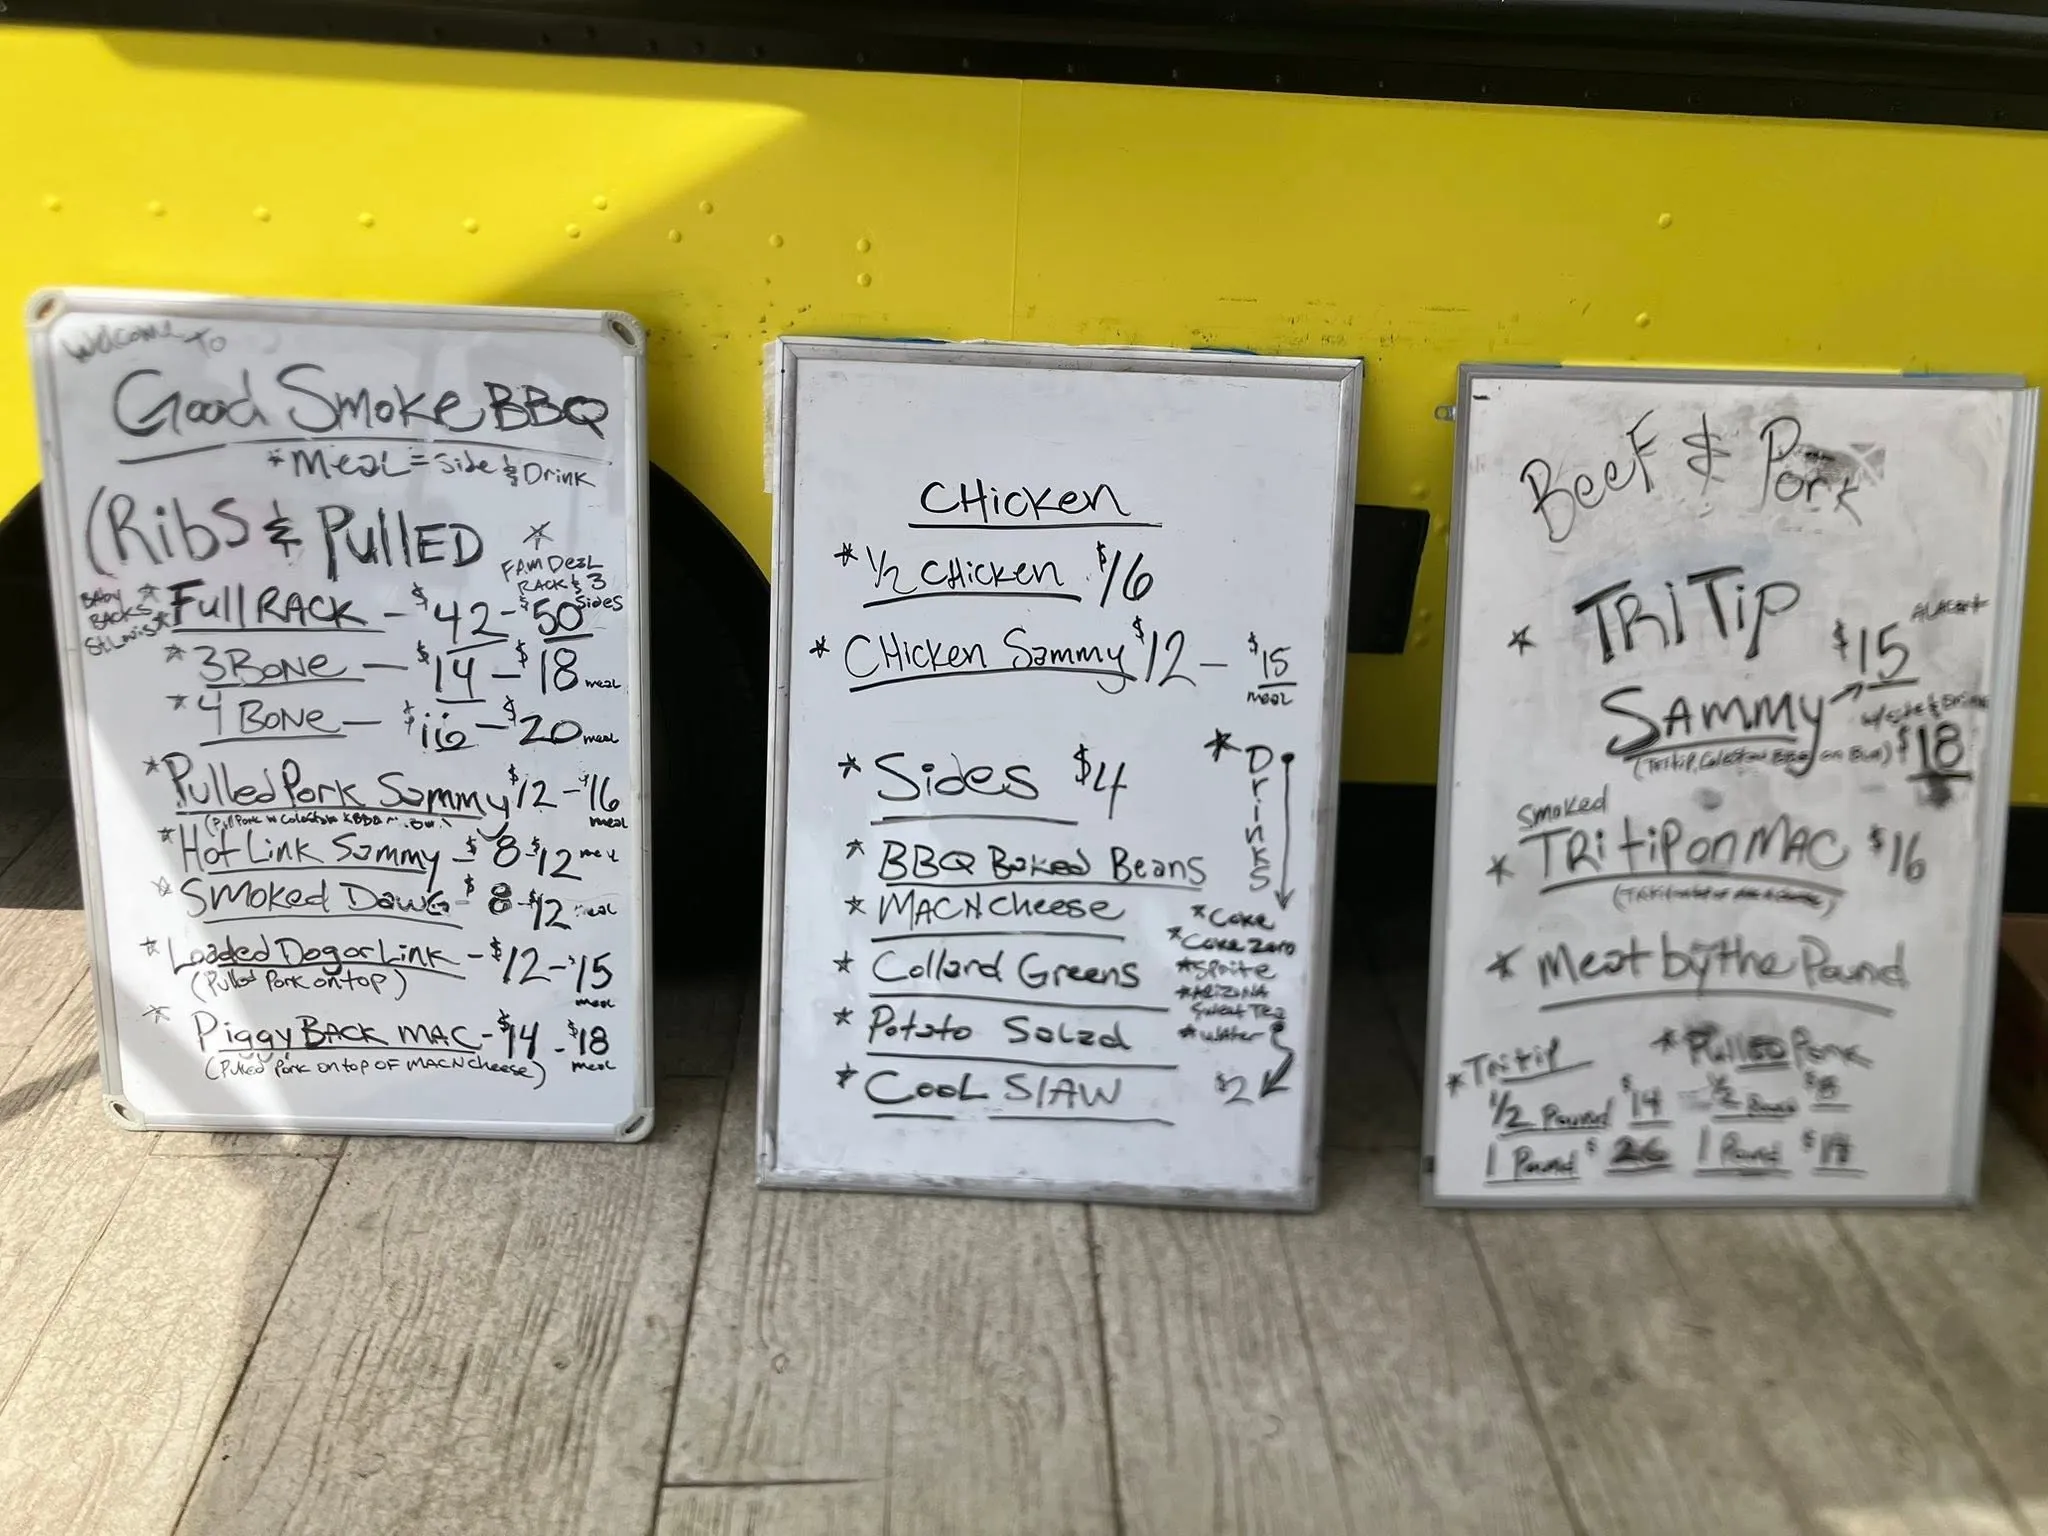 Welcome To
Good Smoke BBQ
*Meal = Side & Drink
(Ribs & Pulled
FAM Deal
Rack & 3
Sides
Baby
Backs
St Louis
* Full Rack - $42 - $50
* 3 Bone - $14 - $18 meal
* 4 Bone - $16 - $20 meal
* Pulled Pork Sammy $12 - $16 meal
* Hot Link Sammy - $8 - $12 meal
* Smoked Dawg - $8 - $12 meal
* Loaded Dog or Link - $12 - $15 meal
(Pulled Pork on top)
* Piggy Back Mac - $14 - $18 meal
(Pulled Pork on top of Mac N Cheese)
Chicken
* 1/2 Chicken $16
* Chicken Sammy $12 - $15 meal
* Sides $4
* BBQ Baked Beans
* Mac N Cheese
* Collard Greens
* Potato Salad
* Cool Slaw
* Drinks
* Coke
* Coke Zero
* Sprite
* Arizona
Sweet Tea
* Water
$2
Beef & Pork
* Tri Tip
Sammy
$15
w/ Side & Drink
$18
Smoked
* Tri tip on Mac $16
* Meat by the Pound
* Tri tip
1/2 Pound $14
1 Pound $26
* Pulled Pork
1/2 Pound
1 Pound